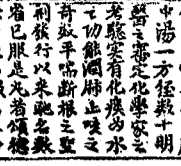 中湯一方經數十明
醫之審定化學家之
考驗實有化痰為水
之功能潤肺止咳之
奇效平喘斷根之聖
劑發行以來馳名數
省已服是丸者頌德